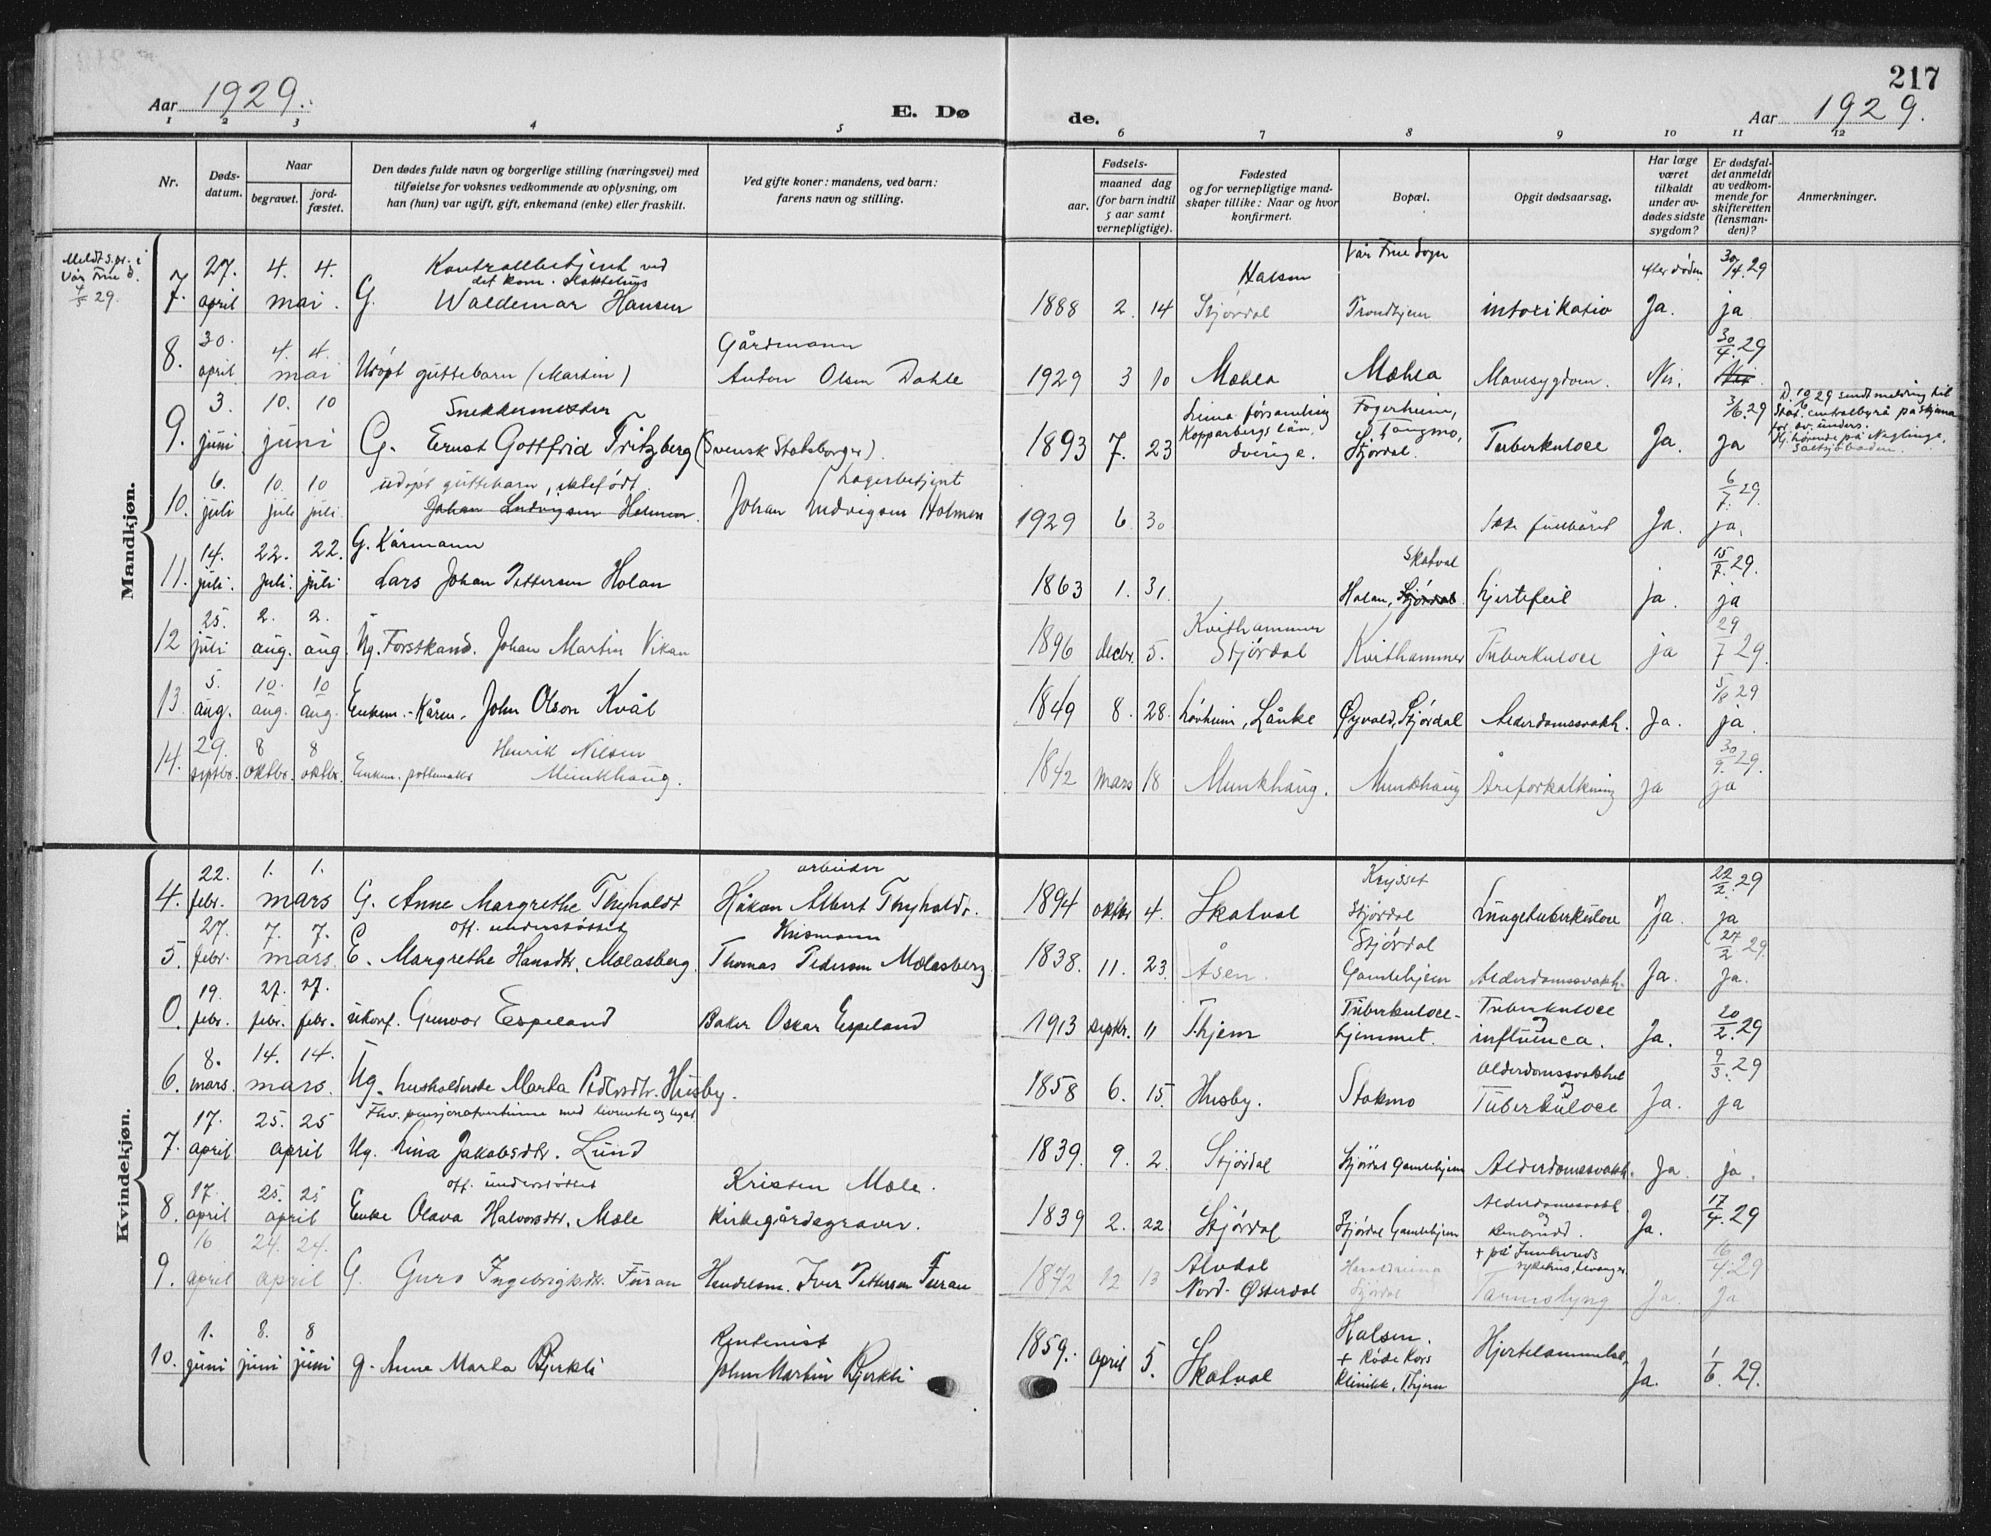 217
Aar 1929.
E. Dø
de.
Aar 1929.
1 2 3 4 5 6 7 8 9 10 11 12
Nr.
Døds-
datum.
Naar
begravet.
jord-
fæstet.
Den dødes fulde navn og borgerlige stilling (næringsvei) med
tilføielse for voksnes vedkommende av oplysning, om
han (hun) var ugift, gift, enkemand (enke) eller fraskilt.
Ved gifte koner: mandens, ved barn:
farens navn og stilling.
Fødsels-
aar.
maaned dag
(for barn indtil
5 aar samt
vernepligtige).
Fødested
og for vernepligtige mand-
skaper tillike: Naar og hvor
konfirmert.
Bopæl.
Opgit dødsaarsag.
Har læge
været
tilkaldt
under av-
dødes sidste
sygdom?
Er dødsfal-
det anmeldt
av vedkom-
mende for
skifteretten
(lensman-
den)?
Anmerkninger.
Mandkjøn.
Meldt s.pr. i
Vår Frue
4/5 29.
27. 4. 4. Kontrollbetjent ved Halsen Vår Frue sogn efter døden 30/4.29
det kom. slaktehus
7. april mai. G. Waldemar Hansen 1888 2. 14 Stjørdal Trondhjem intoxikatio Ja. ja
30. 4. 4. Gårdmann 30/4.29
8. april mai Udøpt guttebarn (Martin) Anton Olsen Dahle 1929 3 10 Mæhla Mæhla Mavesygdom. Nei. Nei
3. 10. 10 Snekkermester Leima forsamling Fagerheim, 3/6.29
9. juni juni G. Ernst Gottfrid Fritzberg (Svensk Statsborger). 1893 7. 23 Kopparbergs län, Sverige. Stjørdal. Tuberkulose Ja. ja
D. 10/6 29 sendt melding til
Stat. centralbyrå på skjema
for av. unders.
Hj.hørende på Neglinge,
Saltsjöbaden.
6. 10. 10 udøpt guttebarn, ektefødt. Lagerbetjent 6/7.29.
10. juli juli juli. Johan Ludvigsen Holmen. Johan Ludvigsen Holmen 1929 6. 30 Ikke fullbåret Ja. ja.
14. 22. 22. G. Kårmann Skatval 15/7.29.
11. juli. juli juli Lars Johan Pettersen Holan 1863 1. 31. Holan, Stjørdal. hjertefeil ja. ja
25. 2. 2. Kvithammer 29/7 29.
12 juli aug. aug. Ug. Forstkand. Johan Martin Vikan 1896 decbr. 5. Stjørdal Kvithammer Tuberkulose ja
5. 10. 10 5/8 29
13. aug. aug. aug. Enkem.-Kårm. John Olson Kvål 1849 8. 28. Løvheim, Lånke Øyvold, Stjørdal Alderdomssvakh. Ja. ja.
29. 8 8 Henrik Nilsen 30/9.29.
14. septbr. oktbr. oktbr. Enkem. pottemaker Munkhaug. 1842 mars 18 Munkhaug. Munkhaug Åreforkalkning ja ja
Kvindekjøn.
22. 1. 1. arbeider Krysset 22/2.29
4. febr. mars G. Anne Margrethe Thyholdt Håkon Albert Thyholdt. 1894 oktbr 4. Skatval Stjørdal Lungetuberkulose Ja. ja
27. 7. 7. off. understøttet Husmann Stjørdal 27/2 29.
5. febr. mars. E. Margrethe Hansdtr. Mælasberg. Thomas Pedersen Mælasberg. 1838. 11. 23. Åsen. Gamlehjem Alderdomssvakh. Ja. Ja.
19. 27. 27. Tuberkulose- Tuberkulose 20/2.29
0. febr. febr. febr. ukonf. Gunvor Espeland Baker Oskar Espeland 1913 septbr. 11 T.hjem hjemmet. og influenca. Ja.
8. 14. 14. Alderdomssvakhet 9/3.29
6. mars. mars. Ug. husholderske Marta Pedersdtr. Husby. 1858 6. 15. Husby. Stokmo og Tuberkulose Ja. ja
17. 25. 25 Fhv. med livrente og legat
7. april april Ug. Lina Jakobsdtr. Lund 1839. 9. 2. Stjørdal Stjørdal Gamlehjem Alderdomssvakh. Ja. ja.
17 25. 25 off. understøttet Kristen Mæle. Alderdomssvakh. 17/4.29
8. april april Enke Olava Halvorsdtr. Mæle Kirkegårdsgraver. 1839 2. 22 Stjørdal Stjørdal Gamlehjem og Benbrudd. Ja.
16 24. 24. Alvdal + på Innherreds sykehus, Levanger. 16/4.29
9. april april G. Guro Ingebrigtsdtr. Furan Handelsm. Iver Pettersen Furan 1872 12 13 Nord-Østerdal Stjørdal Tarmslyng Ja. Ja
1. 8. 8 Rentenist Halsen.
10. juni juni juni g. Anne Marta Bjerkli John Martin Bjerkli 1859. april 5. Skatval + Røde Kors Klinikk, T.hjem Hjertelammelse. Ja. 1/6. 29.